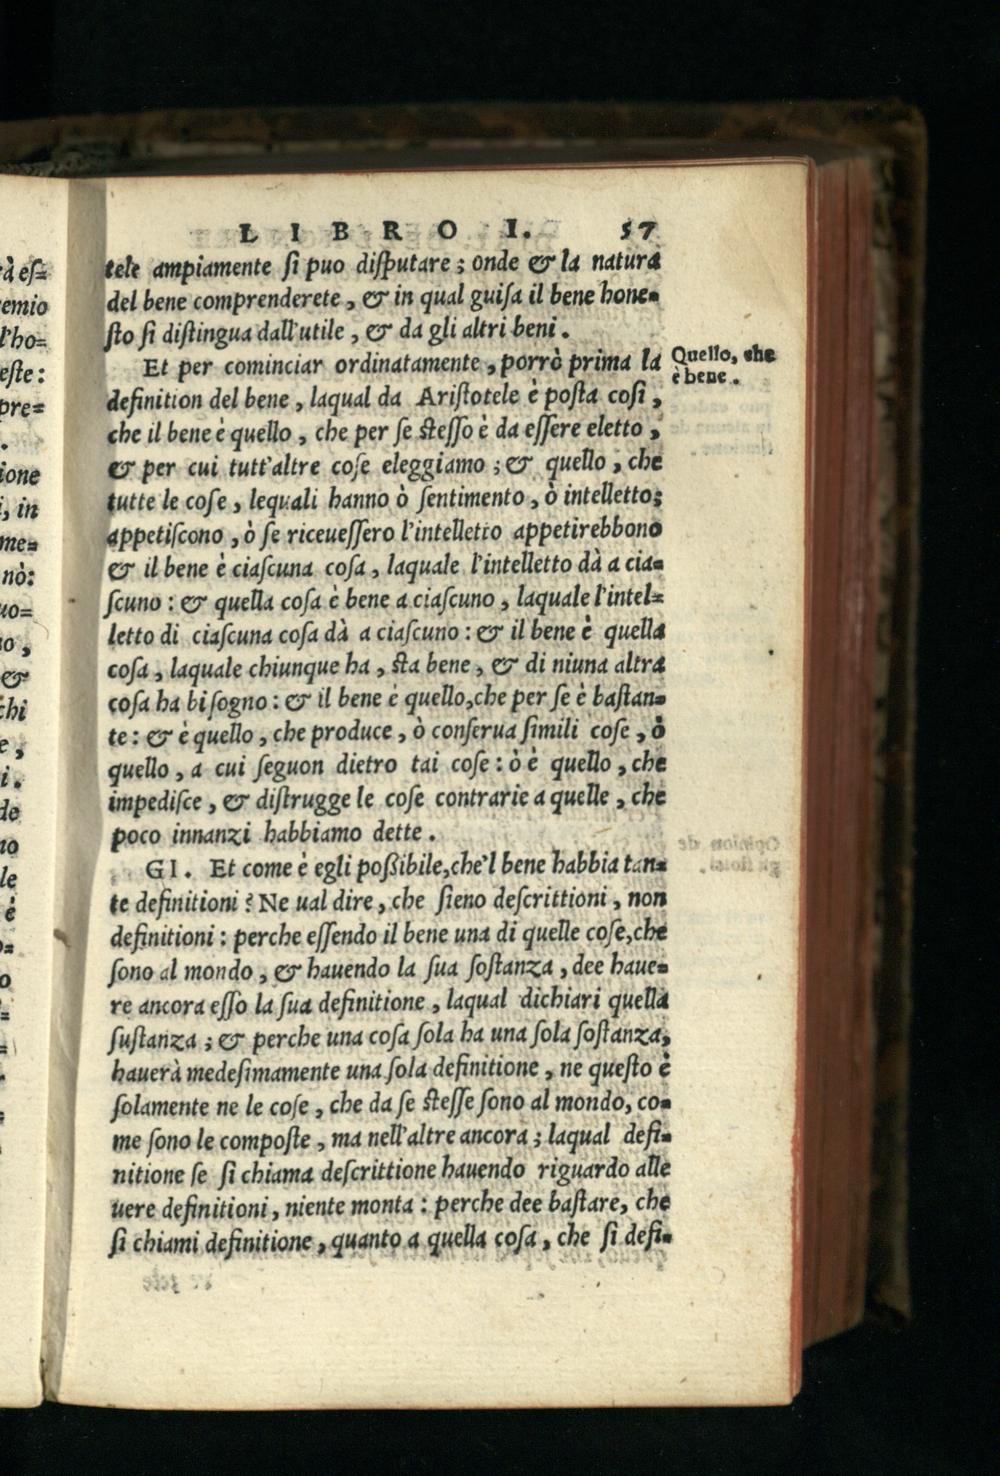 LIBRO I. 57
tele ampiamente ſi puo diſputare; onde & la natura
del bene comprenderete, & in qual guiſa il bene hone-
ſto ſi diſtingua dall'utile, & da gli altri beni.
Et per cominciar ordinatamente, porrò prima la
Quello, che
è bene.
definition del bene, laqual da Ariſtotele è poſta coſi,
che il bene è quello, che per ſe ſteſſo è da eſſere eletto,
& per cui tutt'altre coſe eleggiamo; & quello, che
tutte le coſe, lequali hanno ò ſentimento, ò intelletto;
appetiſcono, ò ſe riceueſſero l'intelletto appetirebbono
& il bene è ciaſcuna coſa, laquale l'intelletto dà a cia-
ſcuno: & quella coſa è bene a ciaſcuno, laquale l'intel-
letto di ciaſcuna coſa dà a ciaſcuno: & il bene è quella
coſa, laquale chiunque ha, ſta bene, & di niuna altra
coſa ha biſogno: & il bene è quello, che per ſe è baſtan-
te: & è quello, che produce, ò conſerua ſimili coſe, ò
quello, a cui ſeguon dietro tai coſe: ò è quello, che
impediſce, & diſtrugge le coſe contrarie a quelle, che
poco innanzi habbiamo dette.
GI. Et come è egli poßibile, che'l bene habbia tan-
te definitioni? Ne ual dire, che ſieno deſcrittioni, non
definitioni: perche eſſendo il bene una di quelle coſe, che
ſono al mondo, & hauendo la ſua ſoſtanza, dee haue-
re ancora eſſo la ſua definitione, laqual dichiari quella
ſuſtanza; & perche una coſa ſola ha una ſola ſoſtanza,
hauerà medeſimamente una ſola definitione, ne queſto è
ſolamente ne le coſe, che da ſe ſteſſe ſono al mondo, co-
me ſono le compoſte, ma nell'altre ancora; laqual defi-
nitione ſe ſi chiama deſcrittione hauendo riguardo alle
uere definitioni, niente monta: perche dee baſtare, che
ſi chiami definitione, quanto a quella coſa, che ſi defi-